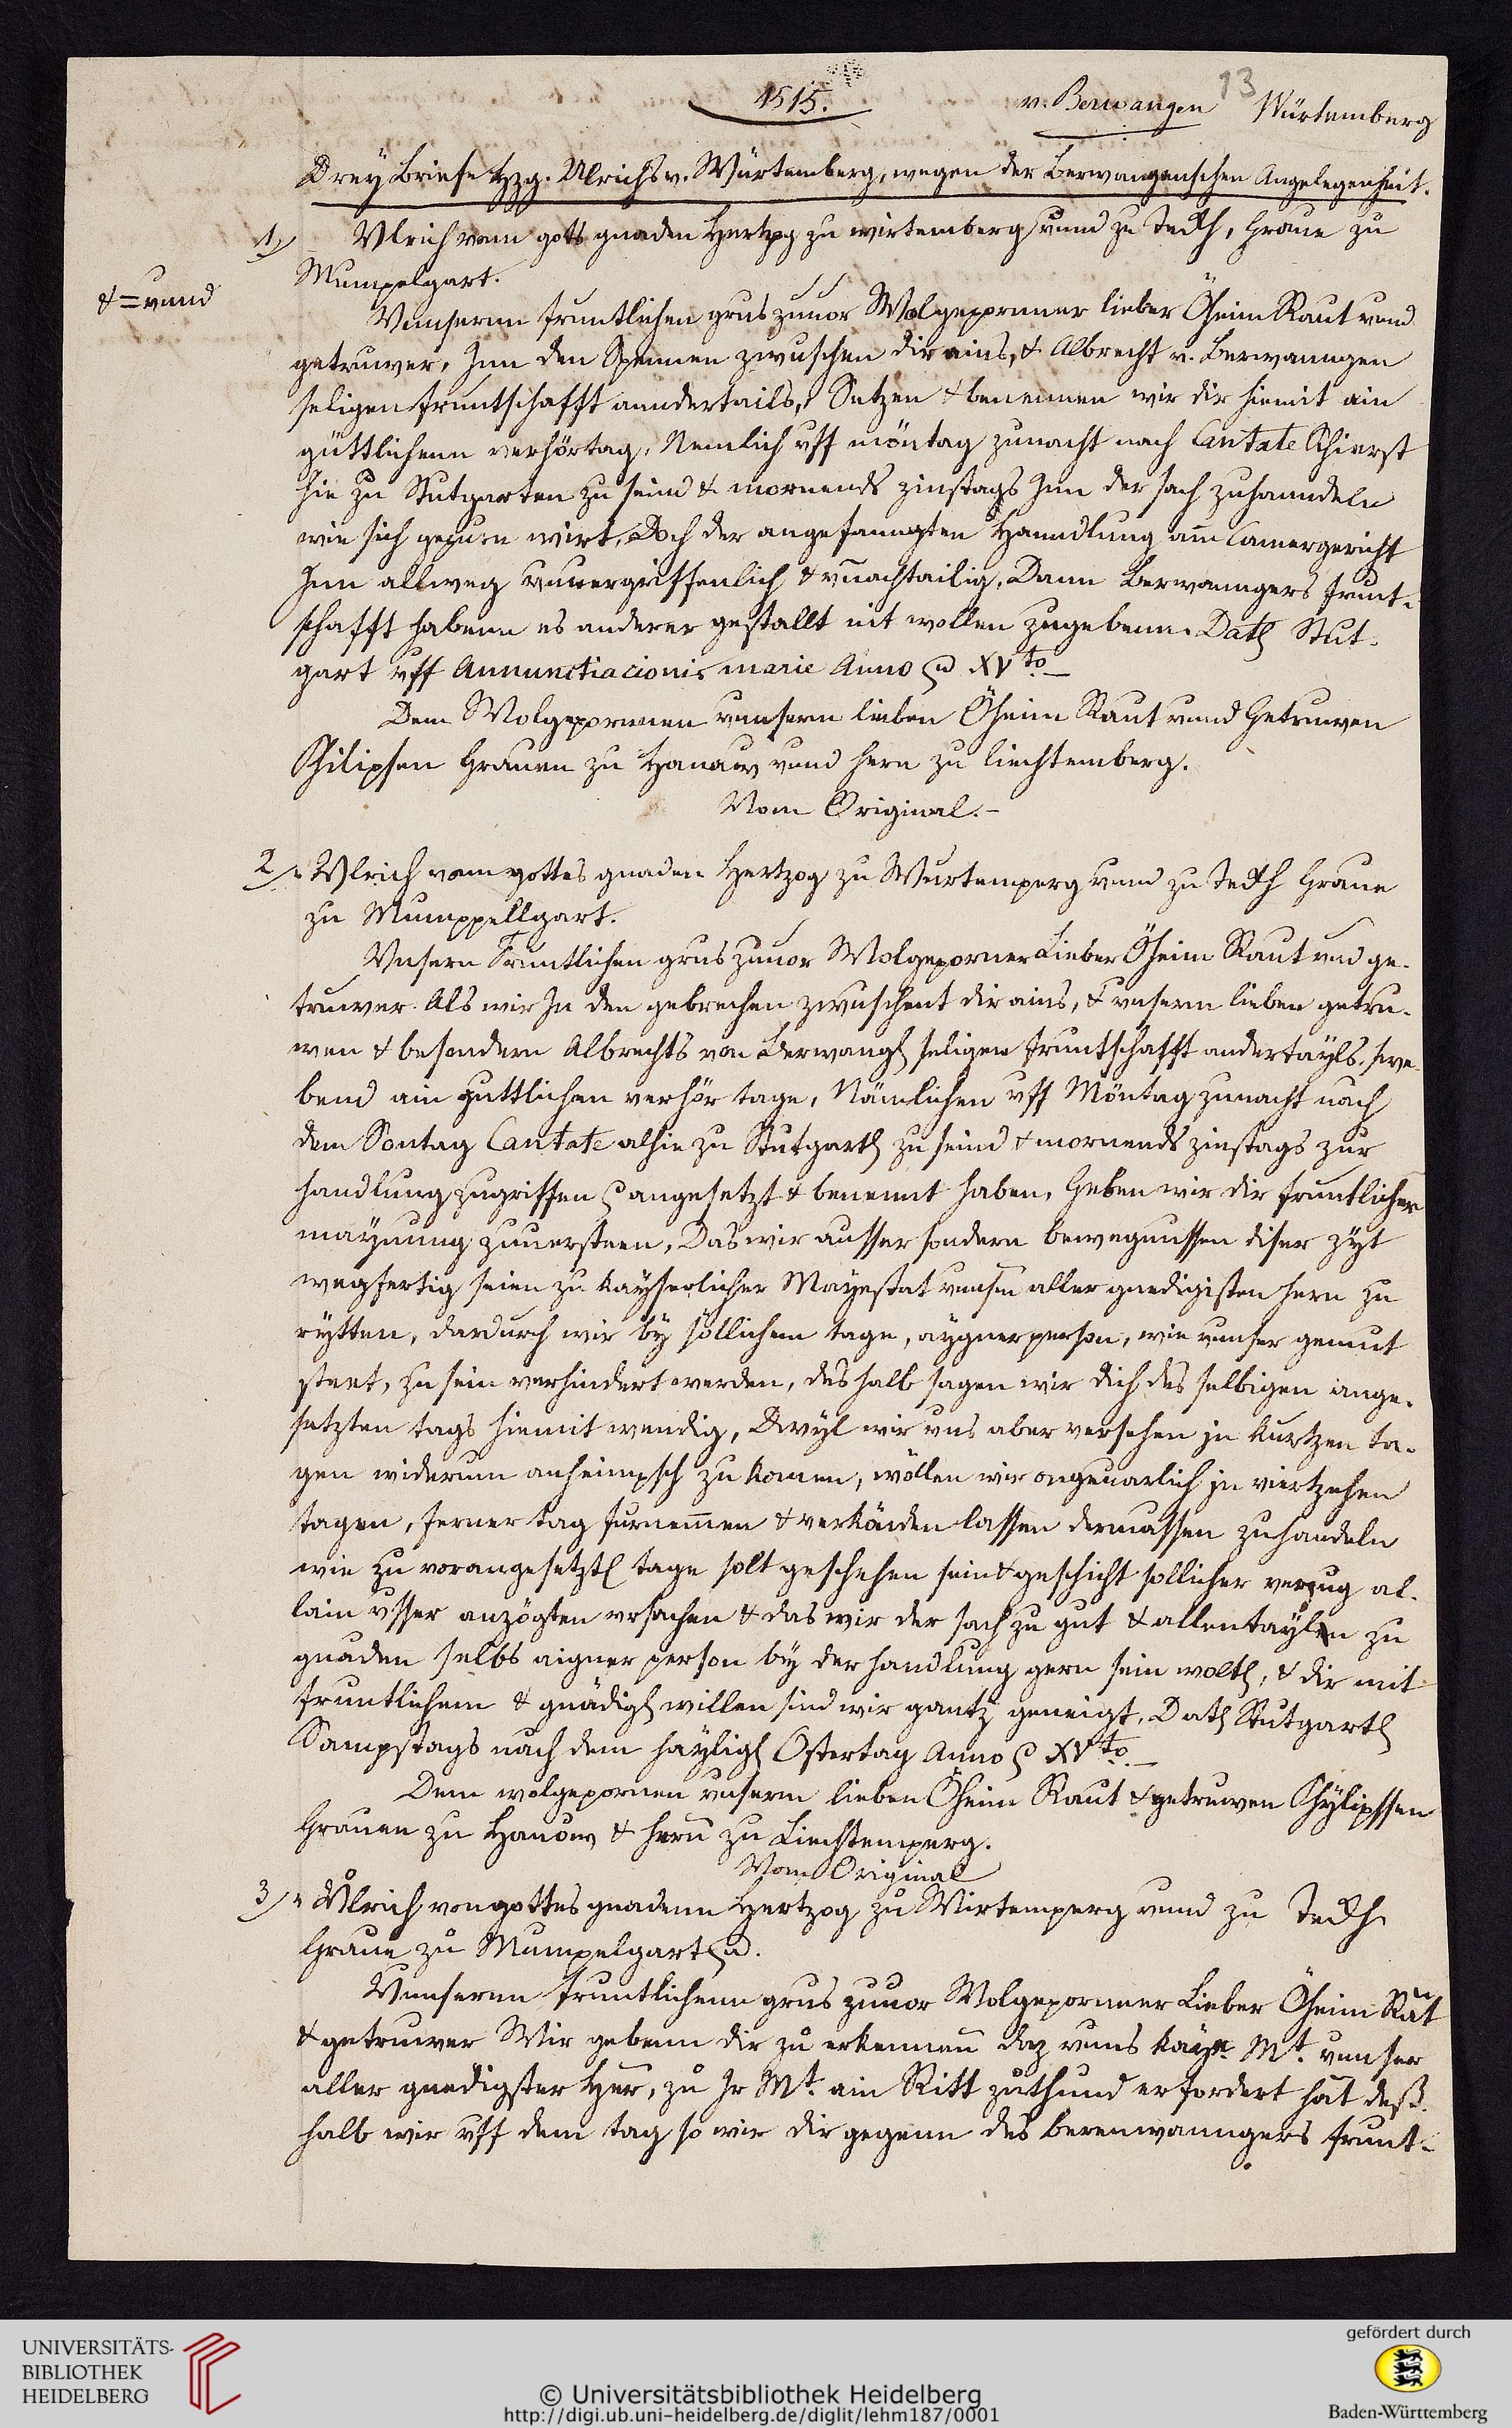 13
1515.
v. Berwangen Würtemberg
Drey Briefe Hzg. Ulrichs v. Würtemberg, wegen der Berwangenschen Angelegenheit.
1) Vlrich vonn gots gnaden Hertzog zu wirtemberg vnnd zu Teckh, Graue zu
Mumpelgart.
& = vnnd
Vnnsernn fruntlichen grus zuuor Wolgepornner lieber Öheim Raut vnnd
getruwer, Inn den Spennen zwuschen dir ains, & Albrecht v. Berwanngen
seligen fruntschafft anndertails, Setzen & benennen wir dir hiemit ain
güttlichenn verhörtag, Nemlich vff möntag zunacht nach Cantate schierst
hie zu Stutgarten zu seind & mornends zinstags Inn der sach zuhanndeln
wie sich gepurn wirt, Doch der angefanngten Hanndlung am Camergericht
Inn allweg vnuergriffenlich & vnachtailig, Dann Berwanngers frunt-
schafft habenn es anderer gestallt nit wollen zugebenn. Dat Stut-
gart vff Annunctiacionis marie Anno XVto
Dem Wolgepornnen vnnserm lieben Öheim Raut vnnd Getruwen
Philipsen Grauen zu Hanaw vnnd hern zu Liechtemberg.
Vom Original.-
2) Vlrich vonn gottes gnaden Hertzog zu Wurtemperg vnnd zu Teckh Graue
zu Mumppellgart.
Vnsern Fruntlichen grus zuuor Wolgeporner Lieber Öheim Raut vnd ge-
truwer. Als wir In den gebrechen zwuschent dir ains, & vnserm lieben getru-
wen & besondern Albrechts von Berwang seligen fruntschafft andertayls, swe-
bend ain guttlichen verhör tage, Nämlichen vff Möntag zunacht nach
dem Sontag Cantate alhie zu Stutgart zu seind & mornends zinstags zur
handlung zugriffen angesetzt & benennt haben, Geben wir dir fruntlicher
maynung zuuersteen, Das wir ausser sondern bewegnussen diser zyt
wegfertig seien zu kayserlicher Mayestat vnnserm aller gnedigisten hern zu
rytten, dardurch wir by söllichem tage, aygner person, wie vnnser gemut
steet, zu sein verhindert werden, deshalb sagen wir dich des selbigen ange-
setzten tags hiemit wendig, Dwyl wir vns aber versehen jn kurtzen ta-
gen widerum anheimpsch zu komen, wöllen wir ongeuarlich jn viertzehen
tagen, ferner tag furnemen & verkünden lassen dermassen zuhandeln
wie zu vorangesetzt tage solt geschehen sein & geschicht sollicher verzug al-
lain vsser anzögten vrsachen & das wir der sach zu gut & allentaylen zu
gnaden selbs aigner person by der handlung gern sein wolt, & dir mit
fruntlichem & gnädig willen sind wir gantz geneigt, Dat Stutgart
Sampstags nach dem hayligen Ostertag Anno XVto
Dem wolgepornen vnserm lieben Öheim Raut & getruwen Phylipssen
Grauen zu Hanow & hern zu Liechtemperg.
Vom Original
3) Vlrich von gottes gnadenn Hertzog zu Wirtemperg vnnd zu Teckh
Graue zu Mumpelgart
Vnnsernn fruntlichenn grus zuuor Wolgepornner Lieber Öheim Rat
& getruwer Wir gebenn dir zu erkennen daz vnns kaye Mt. vnnser
aller gnedigster Herr, zu Ir Mt. ain Ritt zuthund erfordert hat deß-
halb wir vff dem tag so wir dir gegenn des berenwanngers frunt-
UNIVERSITÄTS-
BIBLIOTHEK
HEIDELBERG
© Universitätsbibliothek Heidelberg
http://digi.ub.uni-heidelberg.de/diglit/lehm187/0001
gefördert durch
Baden-Württemberg